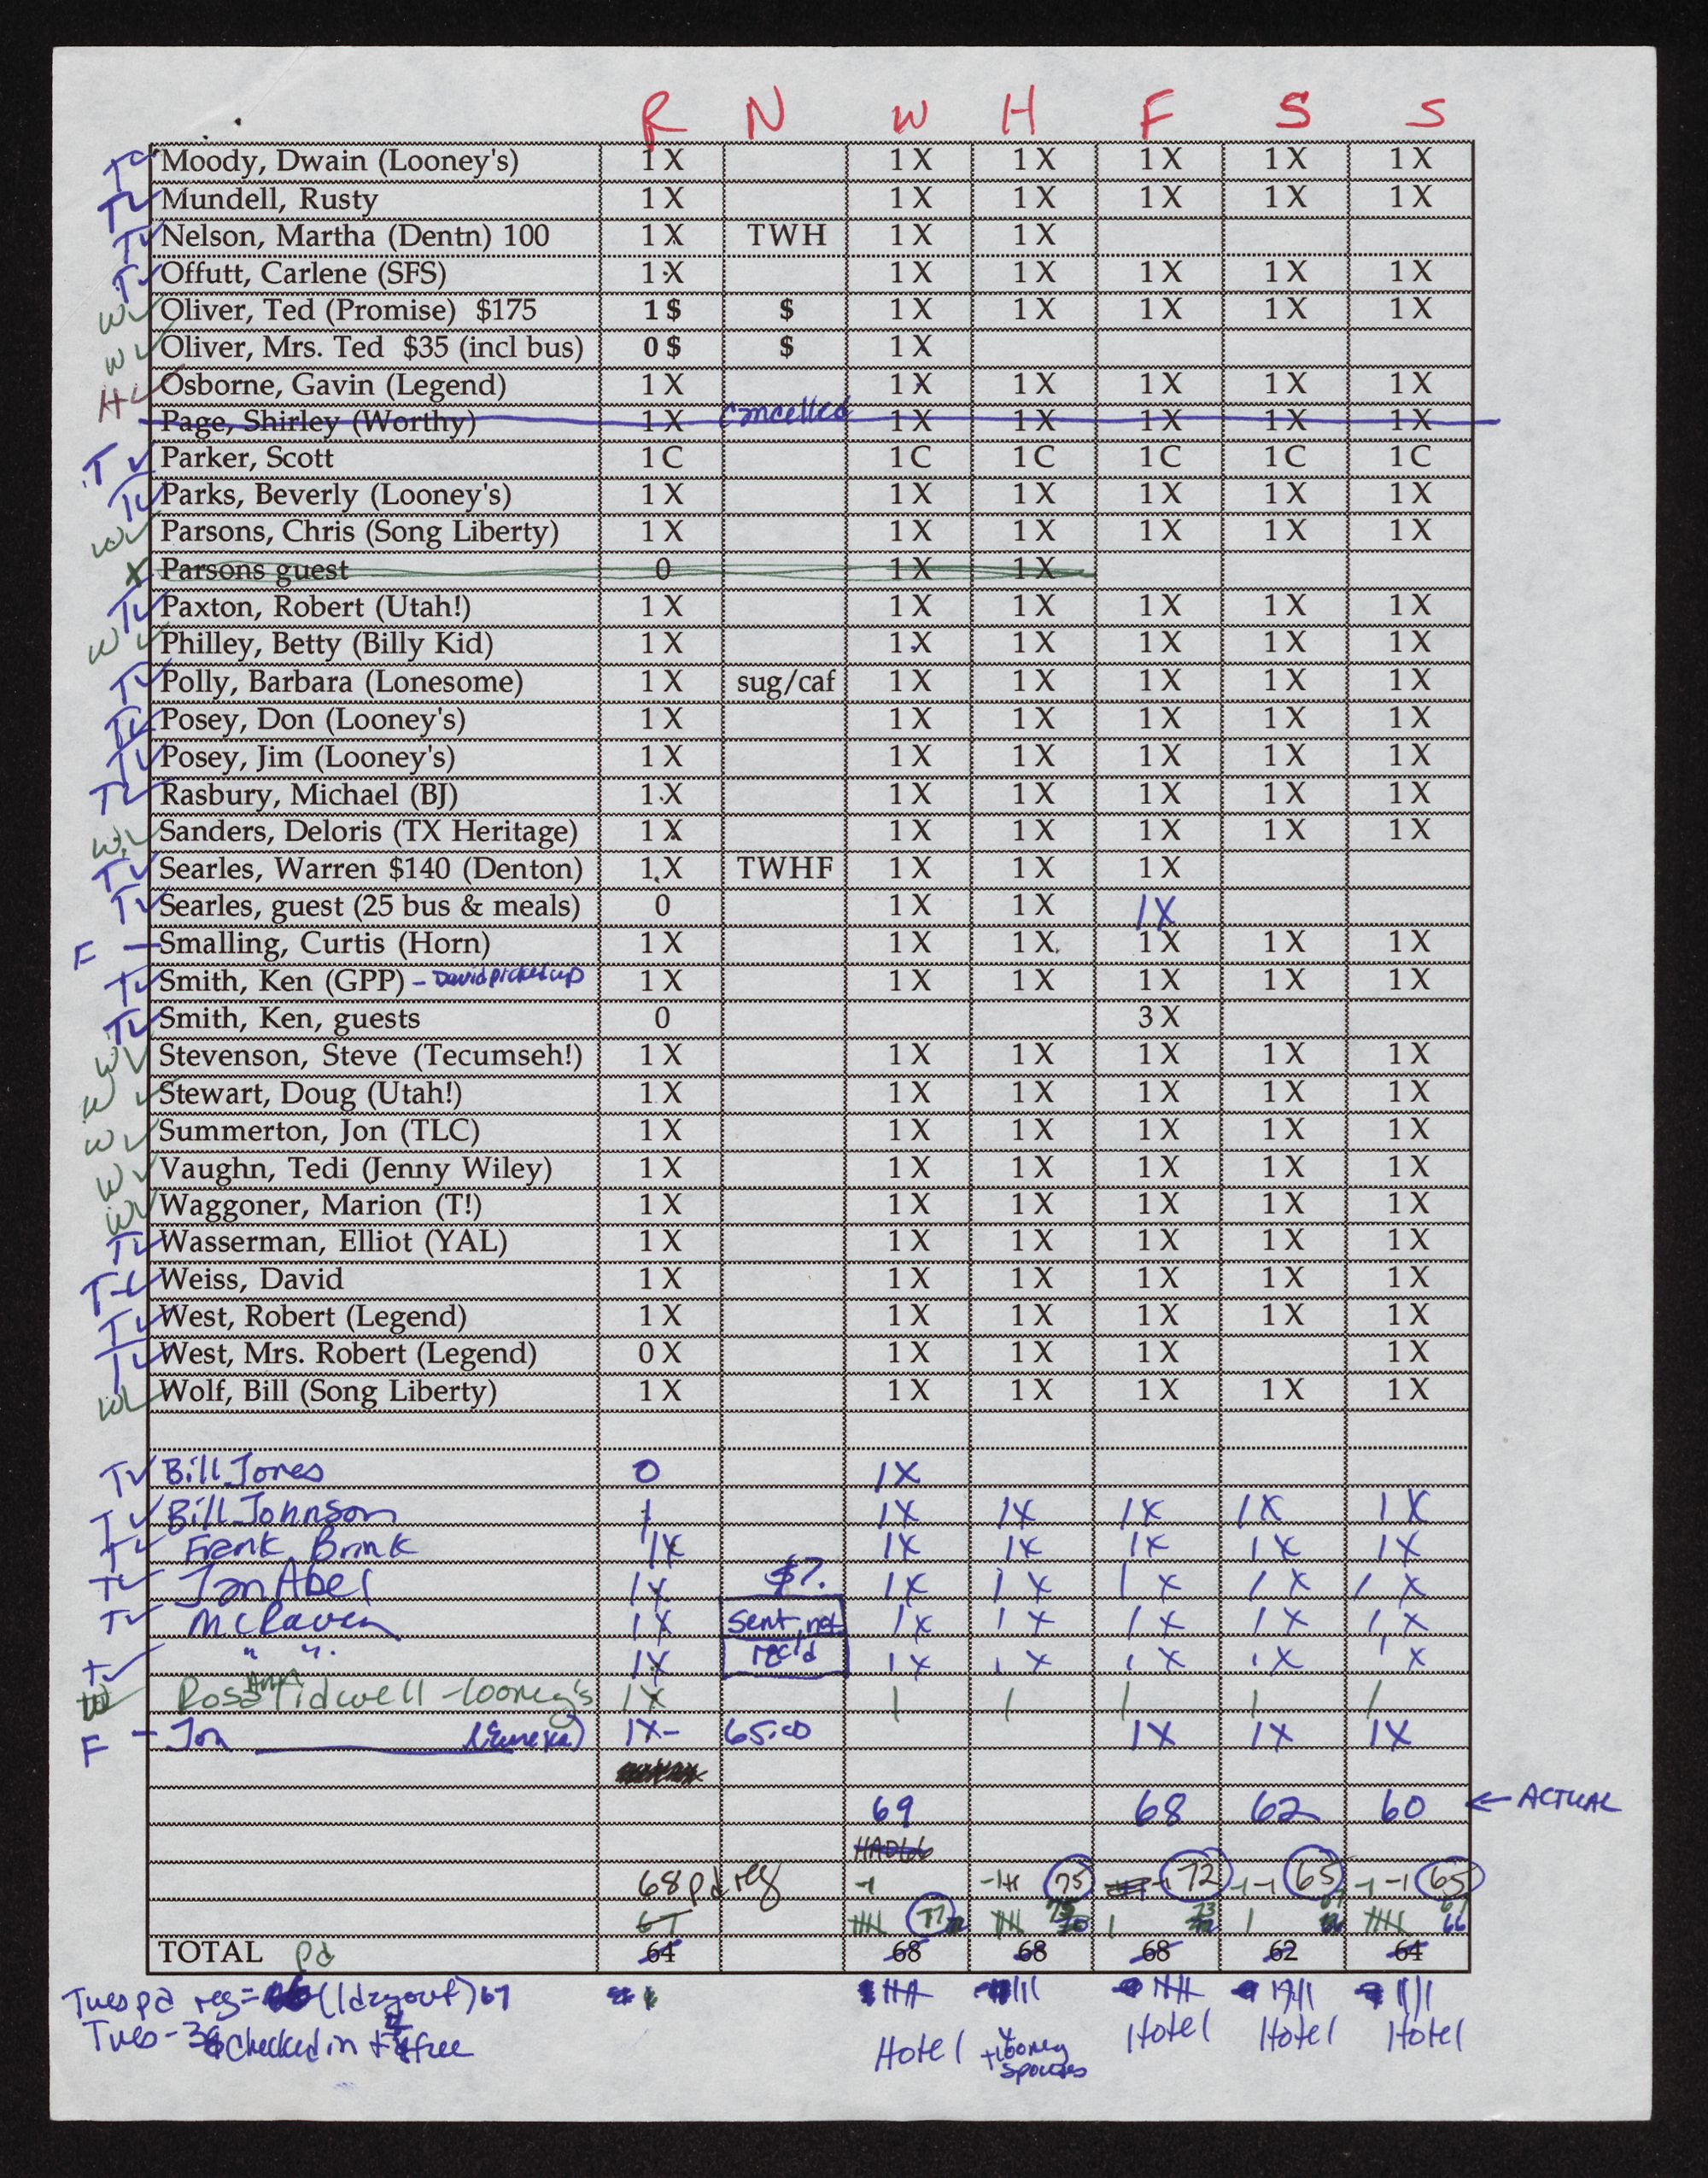 R N W H F S S
T✓ Moody, Dwain (Looney's) 1 X 1 X 1 X 1 X 1 X 1 X
T✓ Mundell, Rusty 1 X 1 X 1 X 1 X 1 X 1 X
T✓ Nelson, Martha (Dentn) 100 1 X TWH 1 X 1 X
T✓ Offutt, Carlene (SFS) 1 X 1 X 1 X 1 X 1 X 1 X
W✓ Oliver, Ted (Promise) $175 1 $ $ 1 X 1 X 1 X 1 X 1 X
W✓ Oliver, Mrs. Ted $35 (incl bus) 0 $ $ 1 X
H✓ Osborne, Gavin (Legend) 1 X 1 X 1 X 1 X 1 X 1 X
Page, Shirley (Worthy) 1 X Cancelled 1 X 1 X 1 X 1 X 1 X
T✓ Parker, Scott 1 C 1 C 1 C 1 C 1 C 1 C
T✓ Parks, Beverly (Looney's) 1 X 1 X 1 X 1 X 1 X 1 X
W✓ Parsons, Chris (Song Liberty) 1 X 1 X 1 X 1 X 1 X 1 X
X Parsons guest 0 1 X 1 X
T✓ Paxton, Robert (Utah!) 1 X 1 X 1 X 1 X 1 X 1 X
W✓ Philley, Betty (Billy Kid) 1 X 1 X 1 X 1 X 1 X 1 X
T✓ Polly, Barbara (Lonesome) 1 X sug/caf 1 X 1 X 1 X 1 X 1 X
T✓ Posey, Don (Looney's) 1 X 1 X 1 X 1 X 1 X 1 X
T✓ Posey, Jim (Looney's) 1 X 1 X 1 X 1 X 1 X 1 X
T✓ Rasbury, Michael (BJ) 1 X 1 X 1 X 1 X 1 X 1 X
W✓ Sanders, Deloris (TX Heritage) 1 X 1 X 1 X 1 X 1 X 1 X
T✓ Searles, Warren $140 (Denton) 1 X TWHF 1 X 1 X 1 X
T✓ Searles, guest (25 bus & meals) 0 1 X 1 X 1X
F – Smalling, Curtis (Horn) 1 X 1 X 1 X 1 X 1 X 1 X
T✓ Smith, Ken (GPP) - David picked up 1 X 1 X 1 X 1 X 1 X 1 X
T✓ Smith, Ken, guests 0 3 X
W✓ Stevenson, Steve (Tecumseh!) 1 X 1 X 1 X 1 X 1 X 1 X
W✓ Stewart, Doug (Utah!) 1 X 1 X 1 X 1 X 1 X 1 X
W✓ Summerton, Jon (TLC) 1 X 1 X 1 X 1 X 1 X 1 X
W✓ Vaughn, Tedi (Jenny Wiley) 1 X 1 X 1 X 1 X 1 X 1 X
W✓ Waggoner, Marion (T!) 1 X 1 X 1 X 1 X 1 X 1 X
T✓ Wasserman, Elliot (YAL) 1 X 1 X 1 X 1 X 1 X 1 X
T✓ Weiss, David 1 X 1 X 1 X 1 X 1 X 1 X
T✓ West, Robert (Legend) 1 X 1 X 1 X 1 X 1 X 1 X
T✓ West, Mrs. Robert (Legend) 0 X 1 X 1 X 1 X 1 X
W✓ Wolf, Bill (Song Liberty) 1 X 1 X 1 X 1 X 1 X 1 X
T✓ Bill Jones 0 1X
T✓ Bill Johnson 1 1X 1X 1X 1X 1X
T✓ Frank Brink 1X 1X 1X 1X 1X 1X
T✓ Jan Abel 1X $?. 1X 1X 1X 1X 1X
T✓ McRaven 1X Sent, not 1X 1X 1X 1X 1X
T✓ " ". 1X rec'd 1X 1X 1X 1X 1X
Rose Ann Tidwell - Looney's 1X 1 1 1 1 1
F – Jon (Eureka) 1X- 65.00 1X 1X 1X
69 68 62 60 ← ACTUAL
HAD66
68 pd reg -1 75 -1 72 -1-1 65 -1-1 65
67 77 66
TOTAL pd 64 68 68 68 62 64
Tues pd reg = (1 day out) 67
Tues - 38 checked in + free
Hotel + Looney spouses Hotel Hotel Hotel